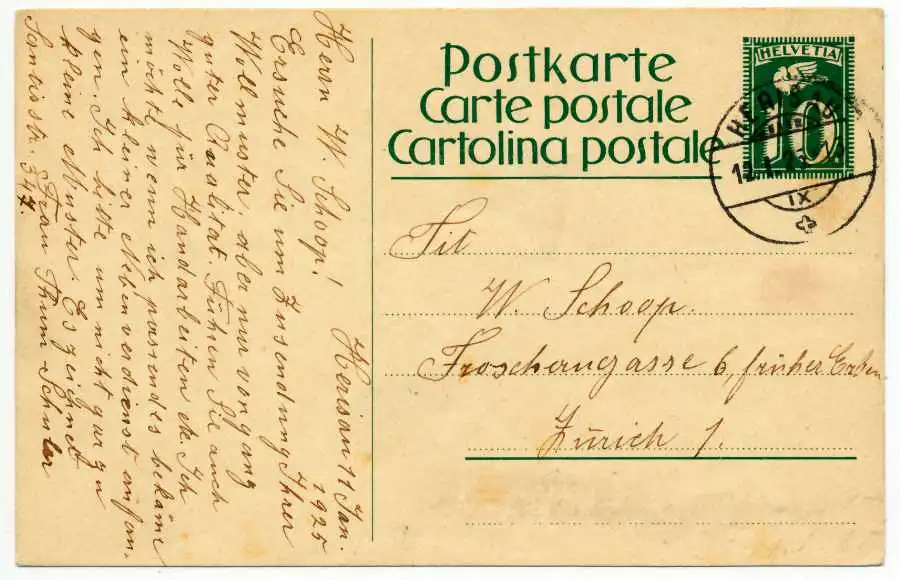 Postkarte
Carte postale
Cartolina postale
HELVETIA
10
HERISAU
12. I. 25.
IX
Tit
W. Schoop.
Froschaugasse 6, früher Erben
Zürich 1.
Herisau 11 Jan.
1925
Herrn W. Schoop!
Ersuche Sie um Zusendung Ihrer
Wollmuster, aber nur von ganz
guter Qualität. Führen Sie auch
Wolle für Handarbeiten etc. Ich
möchte wenn ich passendes bekäme
ein kleiner Nebenverdienst anfan-
gen. Ich bitte um nicht gar zu
kleine Muster. Es zeichnet
Frau Thum-Schuler
Säntisstr. 547.